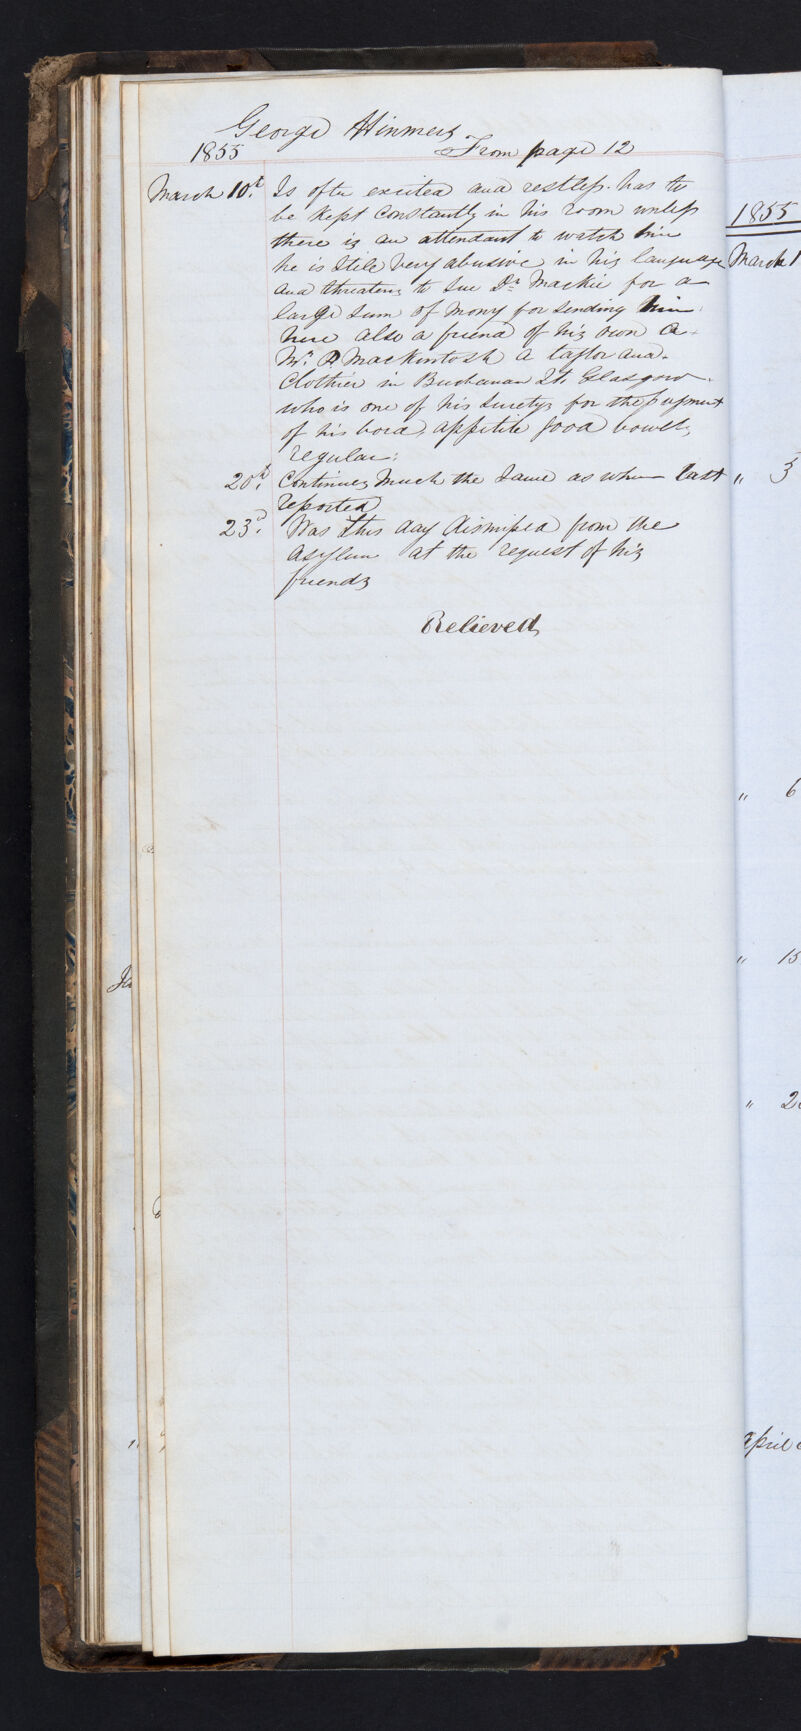 George Hinmers
1855 From page 12
March 10th. Is often excited and restless. has to
be kept constantly in his room unless
there is an attendant to watch him
he is stile very abusive in his language
and threatens to sue Dr Mackie for a
large sum of mony for sending him
here also a friend of his own a
Mr. P Mackintosh a taylor and
Clothier in Buchanan St. Glasgow.
who is one of his suretys for the payment
of his bord, appetite good bowels
regular.
20th. Continues much the same as when last
reported
23d. Was this day dismissed from the
asylum at the request of his
friends
Relieved
1855
March 1
" 3
" 6
" 15
" 2
April